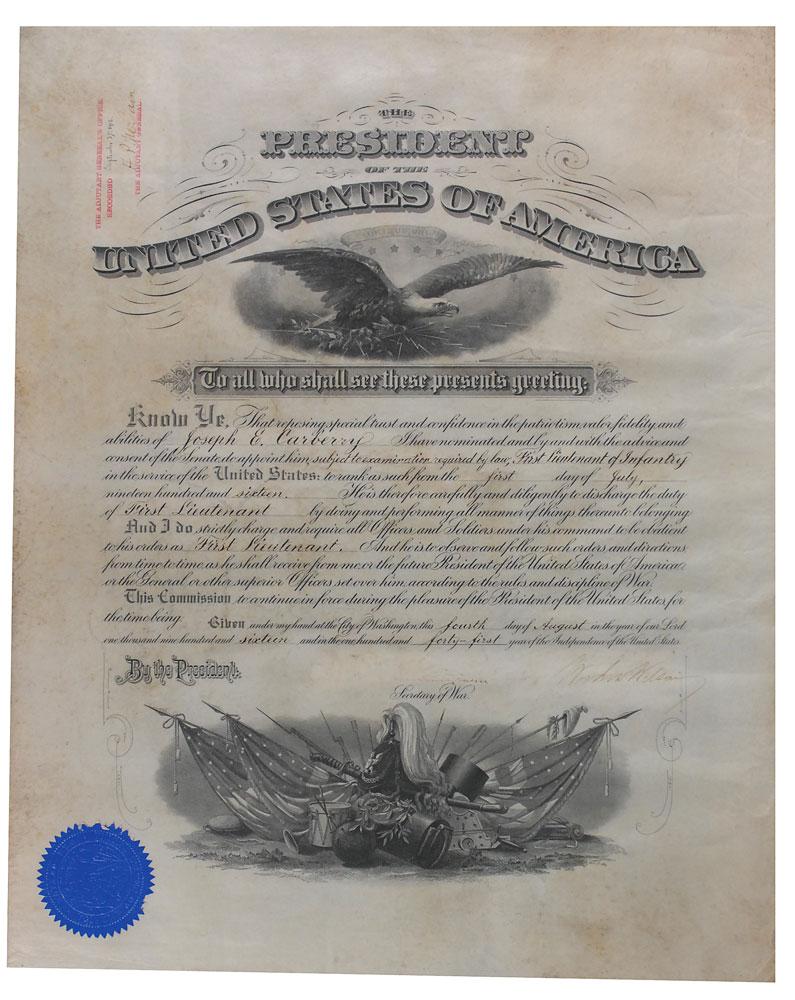 THE ADJUTANT GENERAL'S OFFICE.
RECORDED
THE ADJUTANT GENERAL.
THE
PRESIDENT
OF THE
UNITED STATES OF AMERICA
To all who shall see these presents greeting:
Know Ye, That reposing special trust and confidence in the patriotism, valor, fidelity and
abilities of Joseph E. Carberry I have nominated and by and with the advice and
consent of the Senate do appoint him, subject to examination required by law, First Lieutenant of Infantry
in the service of the United States: to rank as such from the first day of July,
nineteen hundred and sixteen. He is therefore carefully and diligently to discharge the duty
of First Lieutenant by doing and performing all manner of things thereunto belonging.
And I do strictly charge and require all Officers and Soldiers under his command to be obedient
to his orders as First Lieutenant. And he is to observe and follow such orders and directions
from time to time, as he shall receive from me, or the future President of the United States of America
or the General or other superior Officers set over him, according to the rules and discipline of War.
This Commission to continue in force during the pleasure of the President of the United States for
the time being.
Given under my hand at the City of Washington, this fourth day of August in the year of our Lord
one thousand nine hundred and sixteen and in the one hundred and forty-first year of the Independence of the United States.
By the President:
Woodrow Wilson
Secretary of War.